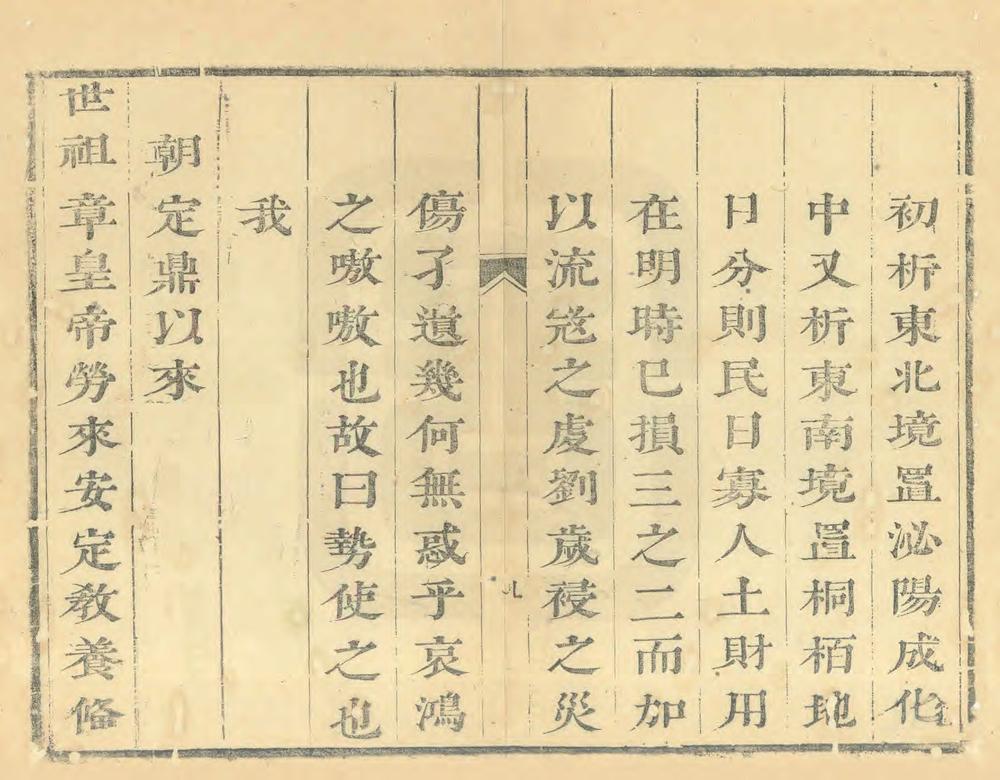 初析東北境置泌陽成化
中又析東南境置桐栢地
日分則民日寡人土財用
在明時巳損三之二而加
以流宼之虔劉歲祲之災
九
傷孑遺幾何無惑乎哀鴻
之嗷嗷也故曰勢使之也
我
朝定鼎以來
世祖章皇帝勞來安定教養俻